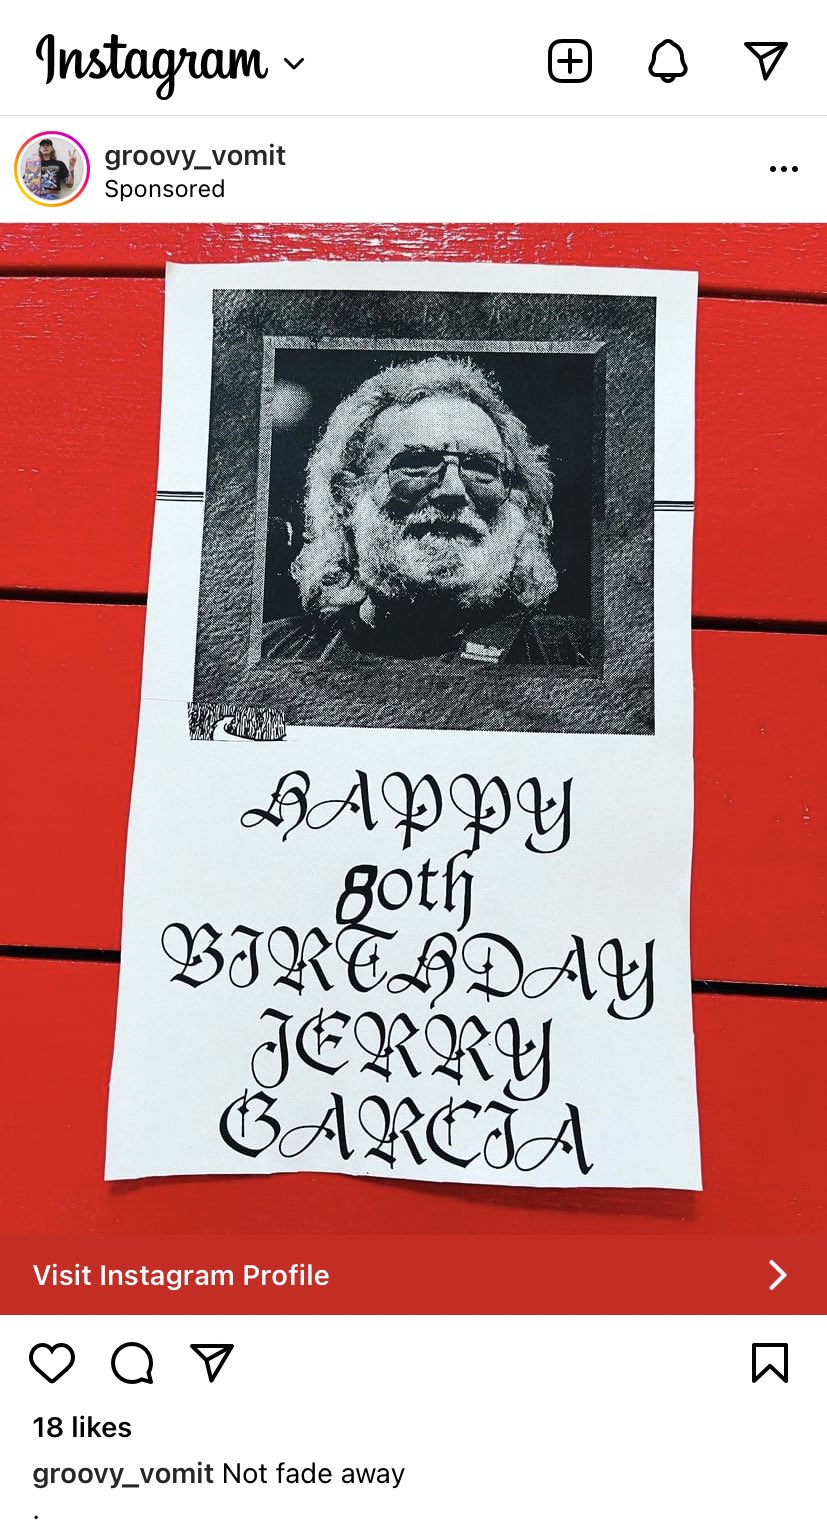 Instagram
groovy_vomit
Sponsored
HAPPY
80th
BIRTHDAY
JERRY
GARCIA
Visit Instagram Profile
18 likes
groovy_vomit Not fade away
.